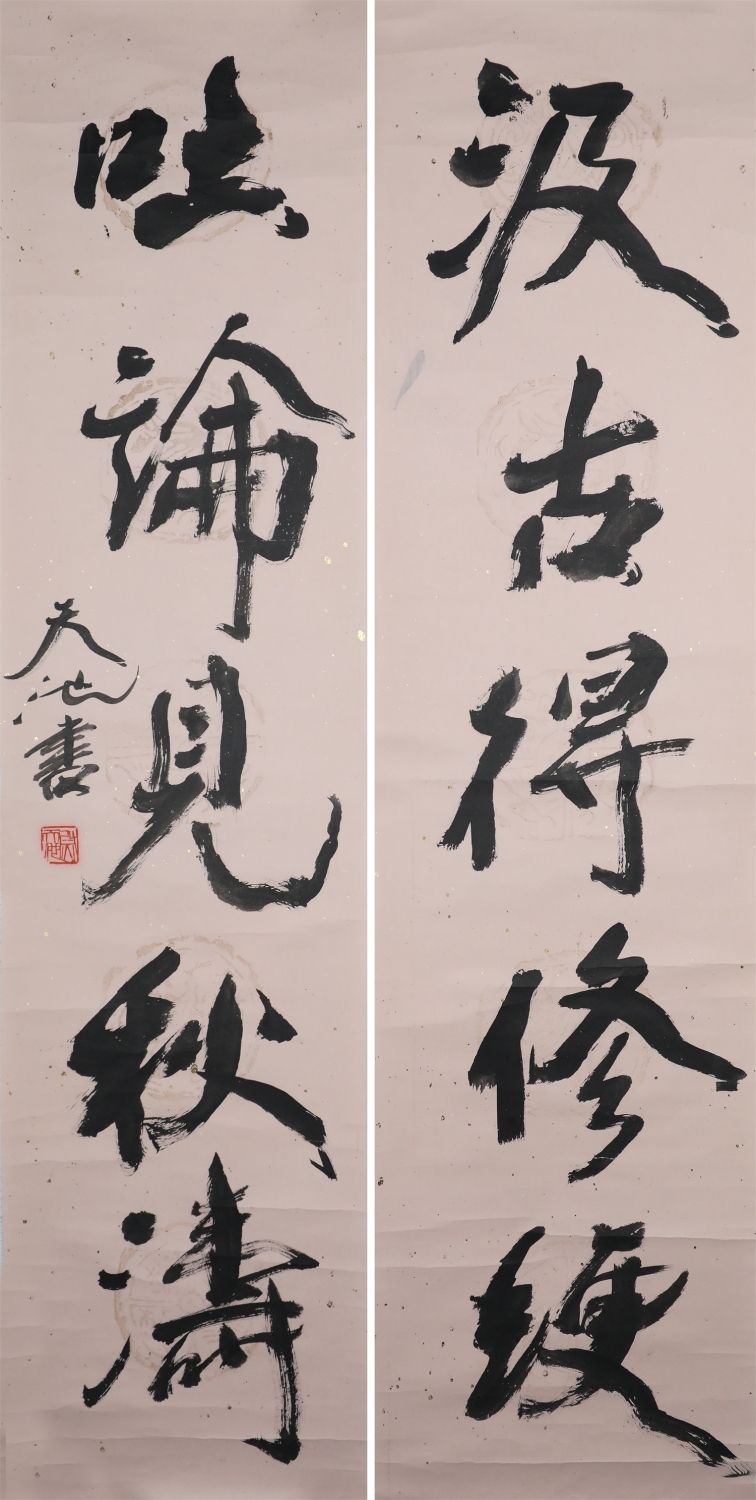 汲古得修綆
吐論見秋濤
天池書